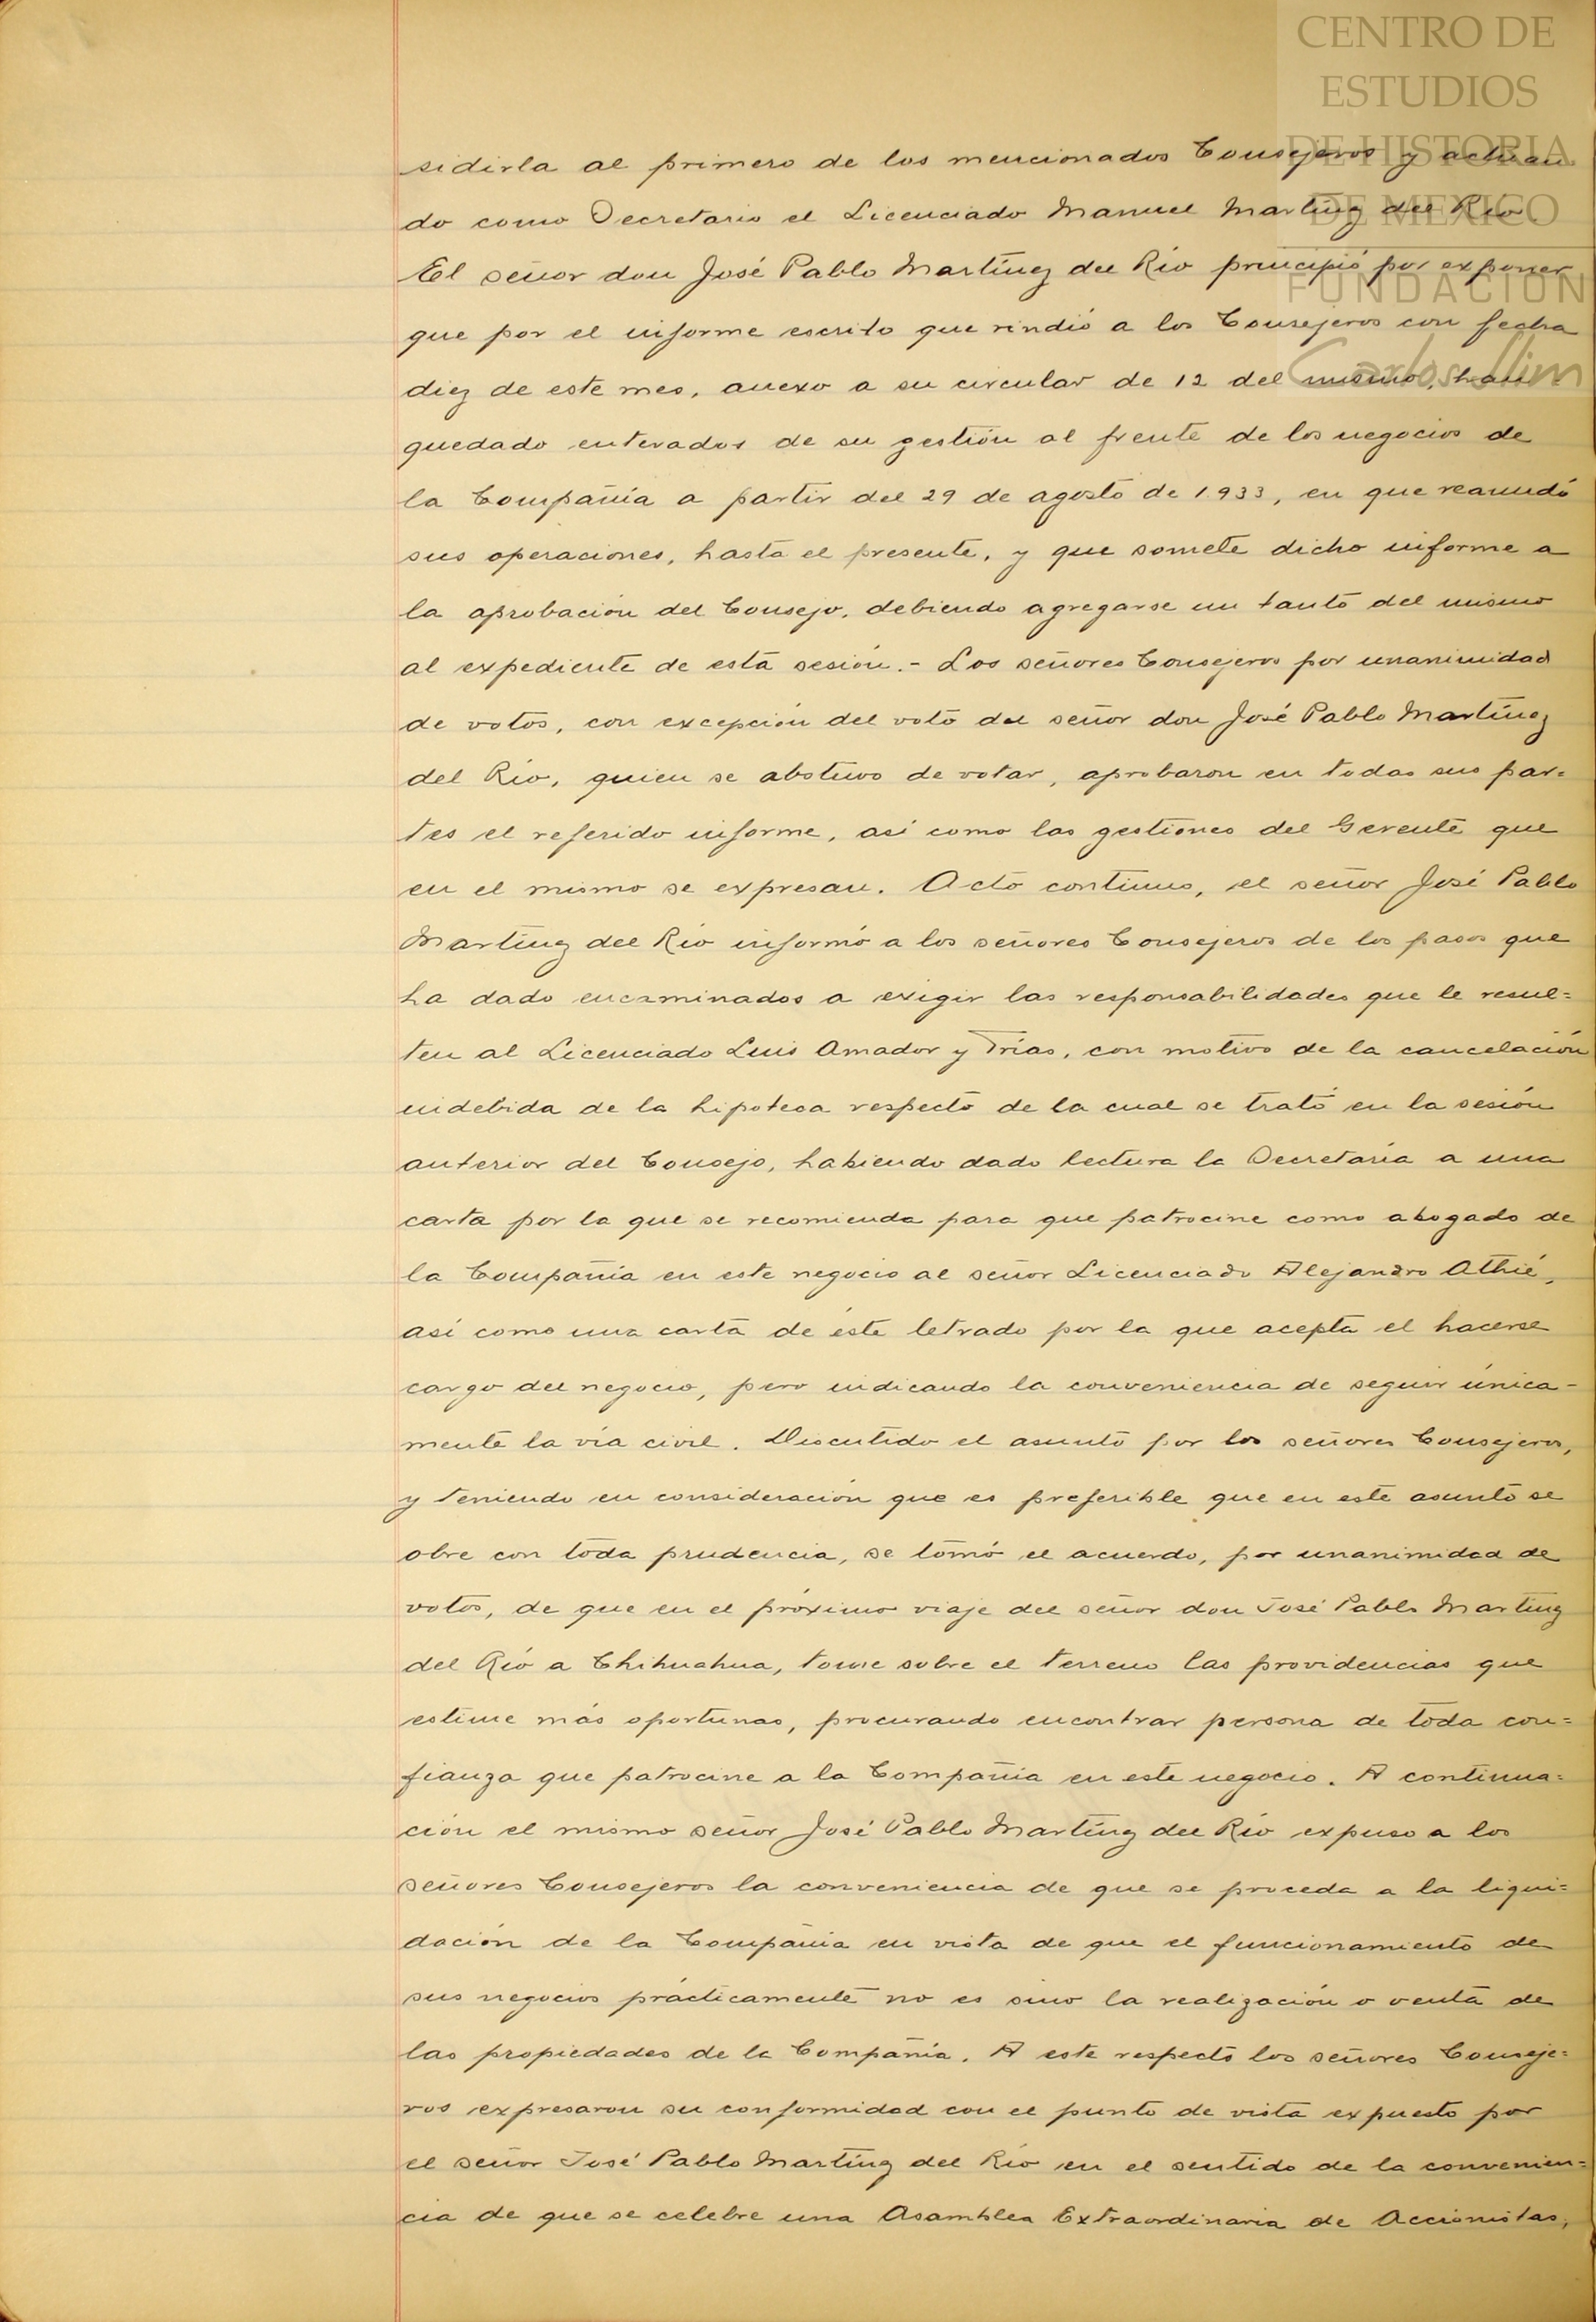 CENTRO DE
ESTUDIOS
DE HISTORIA
DE MEXICO
FUNDACION
Carlos Slim
sidirla al primero de los mencionados Consejeros y actuan
do como Secretario el Licenciado Manuel Martínez del Río.
El señor don José Pablo Martínez del Río principió por exponer
que por el informe escrito que rindió a los Consejeros con fecha
diez de este mes, anexo a su circular de 12 del mismo, han
quedado enterados de su gestión al frente de los negocios de
la Compañía a partir del 29 de agosto de 1.933, en que reanudó
sus operaciones, hasta el presente, y que somete dicho informe a
la aprobación del Consejo, debiendo agregarse un tanto del mismo
al expediente de esta sesión.- Los señores Consejeros por unanimidad
de votos, con excepción del voto del señor don José Pablo Martínez
del Río, quien se abstuvo de votar, aprobaron en todas sus par=
tes el referido informe, así como las gestiones del Gerente que
en el mismo se expresan. Acto continuo, el señor José Pablo
Martínez del Río informó a los señores Consejeros de los pasos que
ha dado encaminados a exigir las responsabilidades que le resul=
ten al Licenciado Luis Amador y Trías, con motivo de la cancelación
indebida de la hipoteca respecto de la cual se trató en la sesión
anterior del Consejo, habiendo dado lectura la Secretaría a una
carta por la que se recomienda para que patrocine como abogado de
la Compañía en este negocio al señor Licenciado Alejandro Athié,
así como una carta de éste letrado por la que acepta el hacerse
cargo del negocio, pero indicando la conveniencia de seguir única-
mente la vía civil. Discutido el asunto por los señores Consejeros,
y teniendo en consideración que es preferible que en este asunto se
obre con toda prudencia, se tomó el acuerdo, por unanimidad de
votos, de que en el próximo viaje del señor don José Pablo Martínez
del Río a Chihuahua, tome sobre el terreno las providencias que
estime más oportunas, procurando encontrar persona de toda con=
fianza que patrocine a la Compañía en este negocio. A continua=
ción el mismo señor José Pablo Martínez del Río expuso a los
señores Consejeros la conveniencia de que se proceda a la liqui=
dación de la Compañía en vista de que el funcionamiento de
sus negocios prácticamente no es sino la realización o venta de
las propiedades de la Compañía. A este respecto los señores Conseje=
ros expresaron su conformidad con el punto de vista expuesto por
el señor José Pablo Martínez del Río en el sentido de la convenien=
cia de que se celebre una Asamblea Extraordinaria de Accionistas,